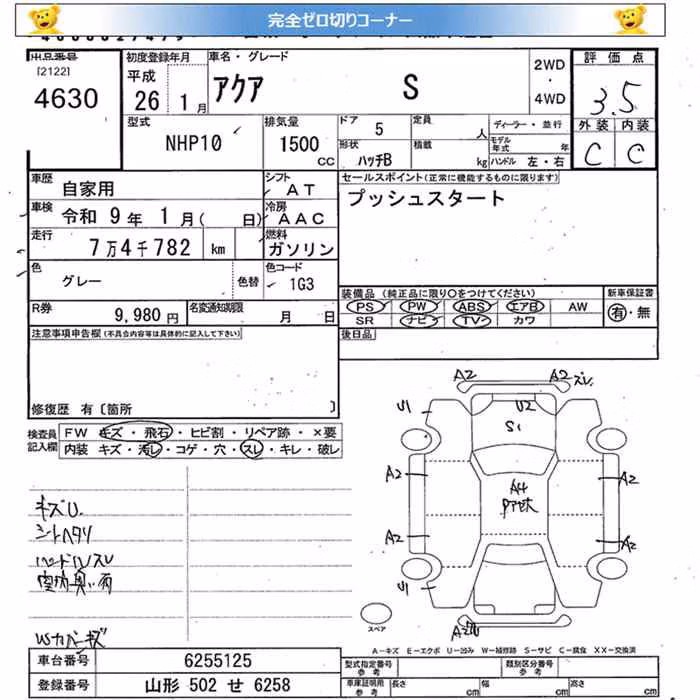 完全ゼロ切りコーナー
出品番号 初度登録年月 車名・グレード 2WD・4WD 評価点
[2122] 平成 26年 1月 アクア S 3.5
4630
型式 NHP10 排気量 1500 CC ドア 5 定員 人 ディーラー・並行 外装 内装
形状 ハッチB 積載 kg モデル年式 年 ハンドル 左・右 C C
車歴 自家用 シフト AT セールスポイント(正常に機能するものに限ります)
車検 令和 9年 1月( 日) 冷房 AAC プッシュスタート
走行 7万4千782 km 燃料 ガソリン
色 グレー 色替 色コード 1G3
R券 9,980円 名変通知期限 月 日 装備品(純正品に限り○をつけてください) 新車保証書
PS PW ABS エアB AW 有・無
SR ナビ TV カワ
注意事項申告欄(不具合内容等は具体的に記入して下さい) 後日品
修復歴 有〔箇所 〕
検査員記入欄 FW キズ・飛石・ヒビ割・リペア跡・×要
内装 キズ・汚レ・コゲ・穴・スレ・キレ・破レ
A2 A2 スレ
U1 U2 U1
S1
A2 A4 A2
A2 A2
U1
キズU
シートヘタリ
ハンドルスレ
スペア
A-キズ E-エクボ U-凹み W-補修跡 S-サビ C-腐食 XX-交換済
車台番号 6255125 型式指定番号 参考 類別区分番号 参考
登録番号 山形 502 せ 6258 車庫証明用 参考 長さ cm 幅 cm 高さ cm